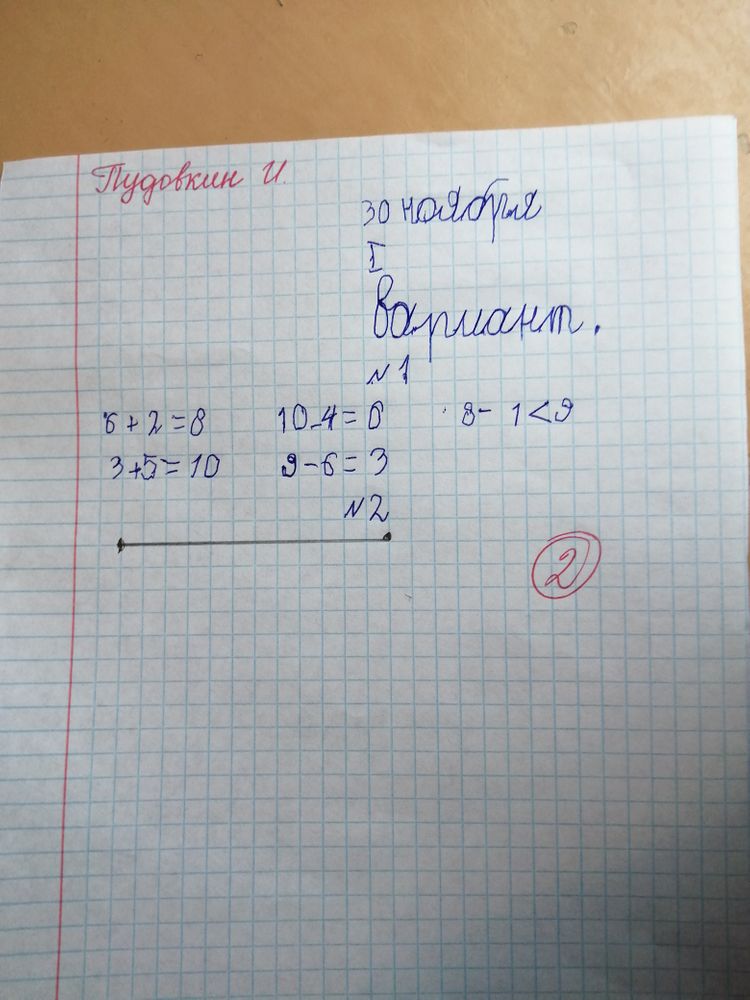 Пудовкин И.
30 ноября
I
Вариант.
№1
6 + 2 = 8 10 - 4 = 6 8 - 1 < 9
3 + 5 = 10 9 - 6 = 3
№2
2